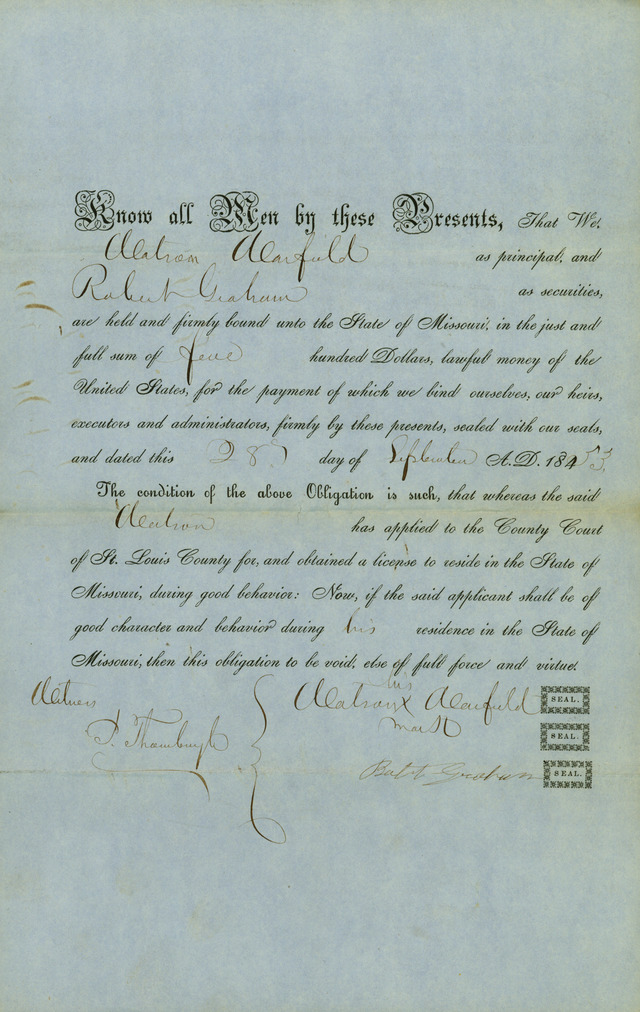 Know all Men by these Presents, That We,
Watson Warfield as principal, and
Robert Graham as securities,
are held and firmly bound unto the State of Missouri, in the just and
full sum of five hundred Dollars, lawful money of the
United States, for the payment of which we bind ourselves, our heirs,
executors and administrators, firmly by these presents, sealed with our seals,
and dated this 28th day of September A.D. 1853.
The condition of the above Obligation is such, that whereas the said
Watson has applied to the County Court
of St. Louis County for, and obtained a license to reside in the State of
Missouri, during good behavior: Now, if the said applicant shall be of
good character and behavior during his residence in the State of
Missouri, then this obligation to be void, else of full force and virtue.
his
Witness Watson X Warfield SEAL.
mark SEAL.
Thornburgh
Robt Graham SEAL.